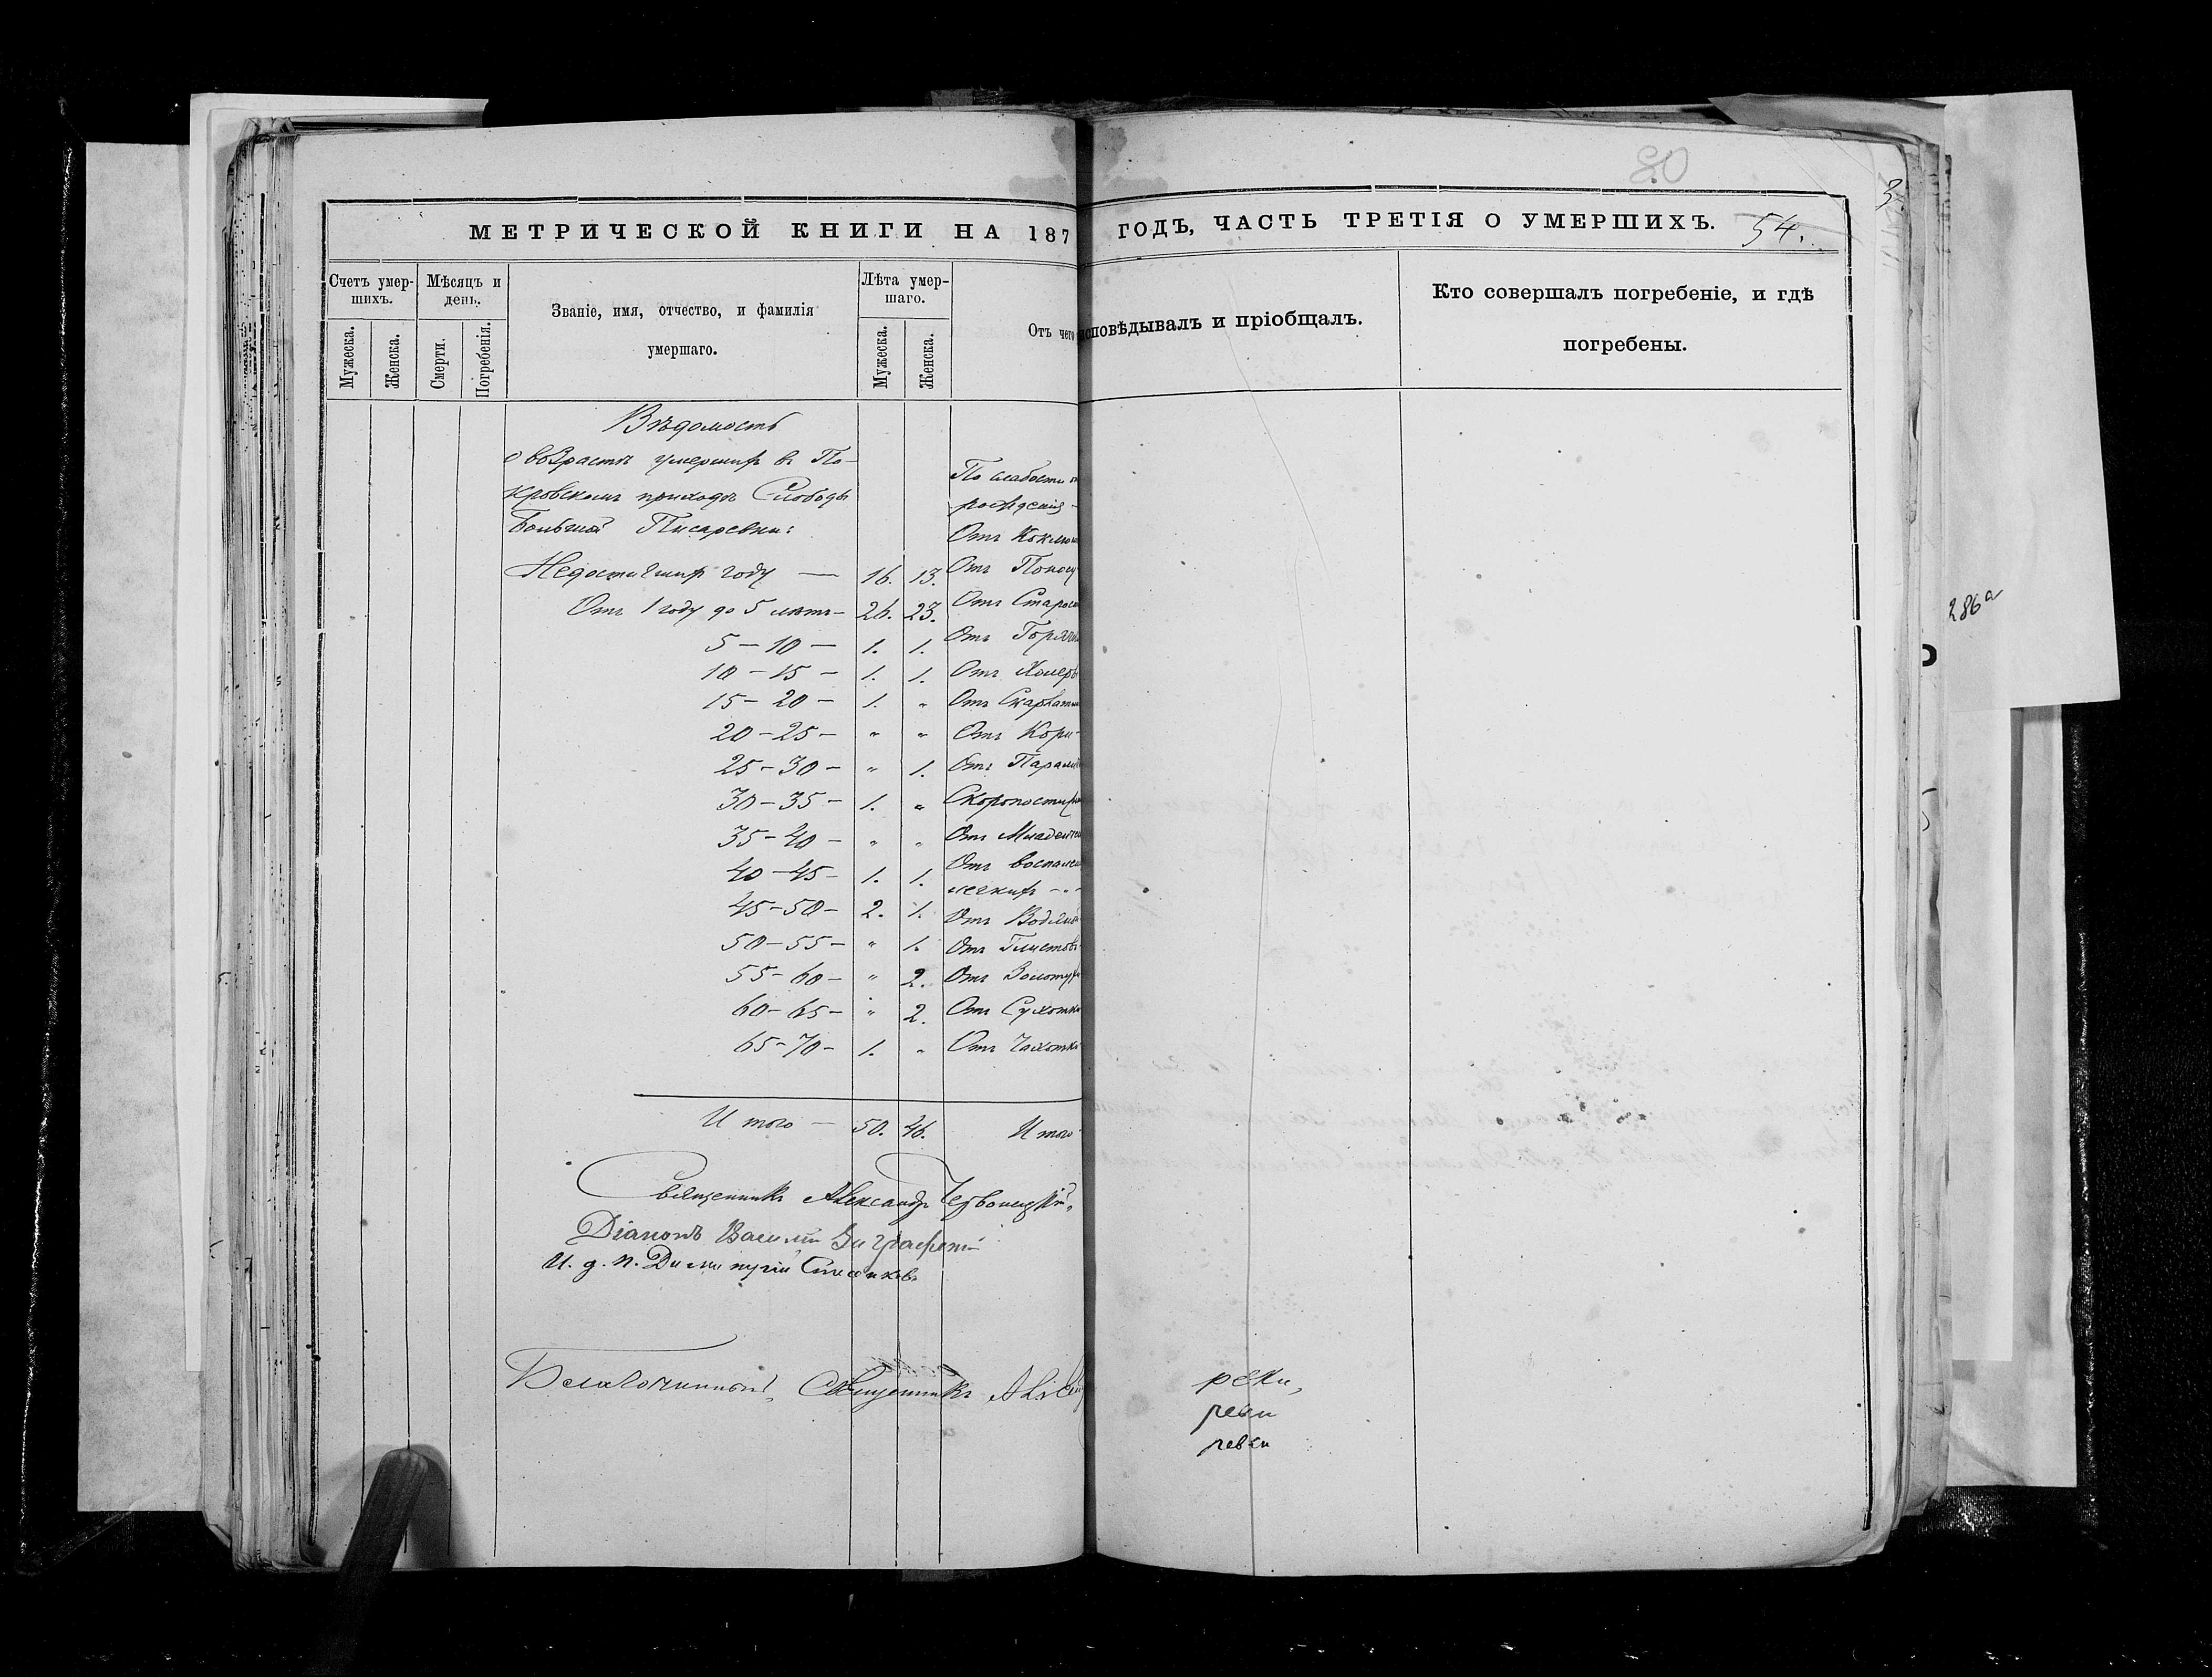 80
3.
МЕТРИЧЕСКОЙ КНИГИ НА 187
ГОДЪ, ЧАСТЬ ТРЕТІЯ О УМЕРШИХЪ. 54.
Счетъ умер-
шихъ.
Мужеска.
Женска.
Мѣсяцъ и
день.
Смерти.
Погребенія.
Званіе, имя, отчество, и фамилія
умершаго.
Лѣта умер-
шаго.
Мужеска.
Женска.
Отъ чего
исповѣдывалъ и пріобщалъ.
Кто совершалъ погребеніе, и гдѣ
погребены.
Вѣдомость
о возрастѣ умершихъ въ По-
кровскомъ приходѣ Слободы
Большой Писаревки:
Недостигшихъ году — 16. 13.
Отъ 1 году до 5 лѣтъ – 26. 23.
5 – 10 – 1. 1.
10 – 15 – 1. 1.
15 – 20 – 1. "
20 – 25 – " "
25 – 30 – " 1.
30 – 35 – 1. "
35 – 40 – " "
40 – 45 – 1. 1.
45 – 50 – 2. 1.
50 – 55 – " 1.
55 – 60 – " 2.
60 – 65 – " 2.
65 – 70 – 1. "
Итого — 50. 46.
По слабости
рожденія –
Отъ Коклюш
Отъ Понос
Отъ Старос
Отъ Горяч
Отъ Холеры
Отъ Скарлатин
Отъ Кори –
Отъ Парали
Скоропостиж
Отъ Младенч
Отъ воспален
легкихъ – " –
Отъ Водян
Отъ Глистовъ
Отъ Золотух
Отъ Сухотки
Отъ Чахотки
Итого
Священникъ Александръ
Діаконъ Василій
И. д. п. Димитрій
Благочинный, Священникъ
реки,
ревки
ревки
286а